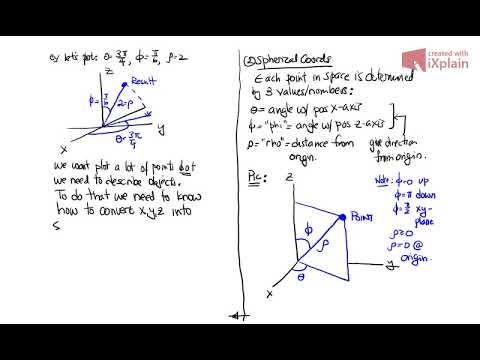 ex Let's plot: θ = 3π/4, φ = π/6, ρ = 2
Z
Result
φ = π/6
2 = ρ
y
θ = 3π/4
X
We won't plot a lot of points but
we need to describe objects.
To do that we need to know
how to convert x,y,z into
s
created with
iXplain
② Spherical Coords
Each point in space is determined
by 3 values/numbers:
θ = angle w/ pos x-axis
φ = "phi" = angle w/ pos z-axis
ρ = "rho" = distance from
origin.
give direction
from origin.
Pic:
Z
POINT
φ
ρ
θ
y
X
Note: φ=0 up
φ=π down
φ=π/2 xy-
plane
ρ≥0
ρ=0 @
origin.